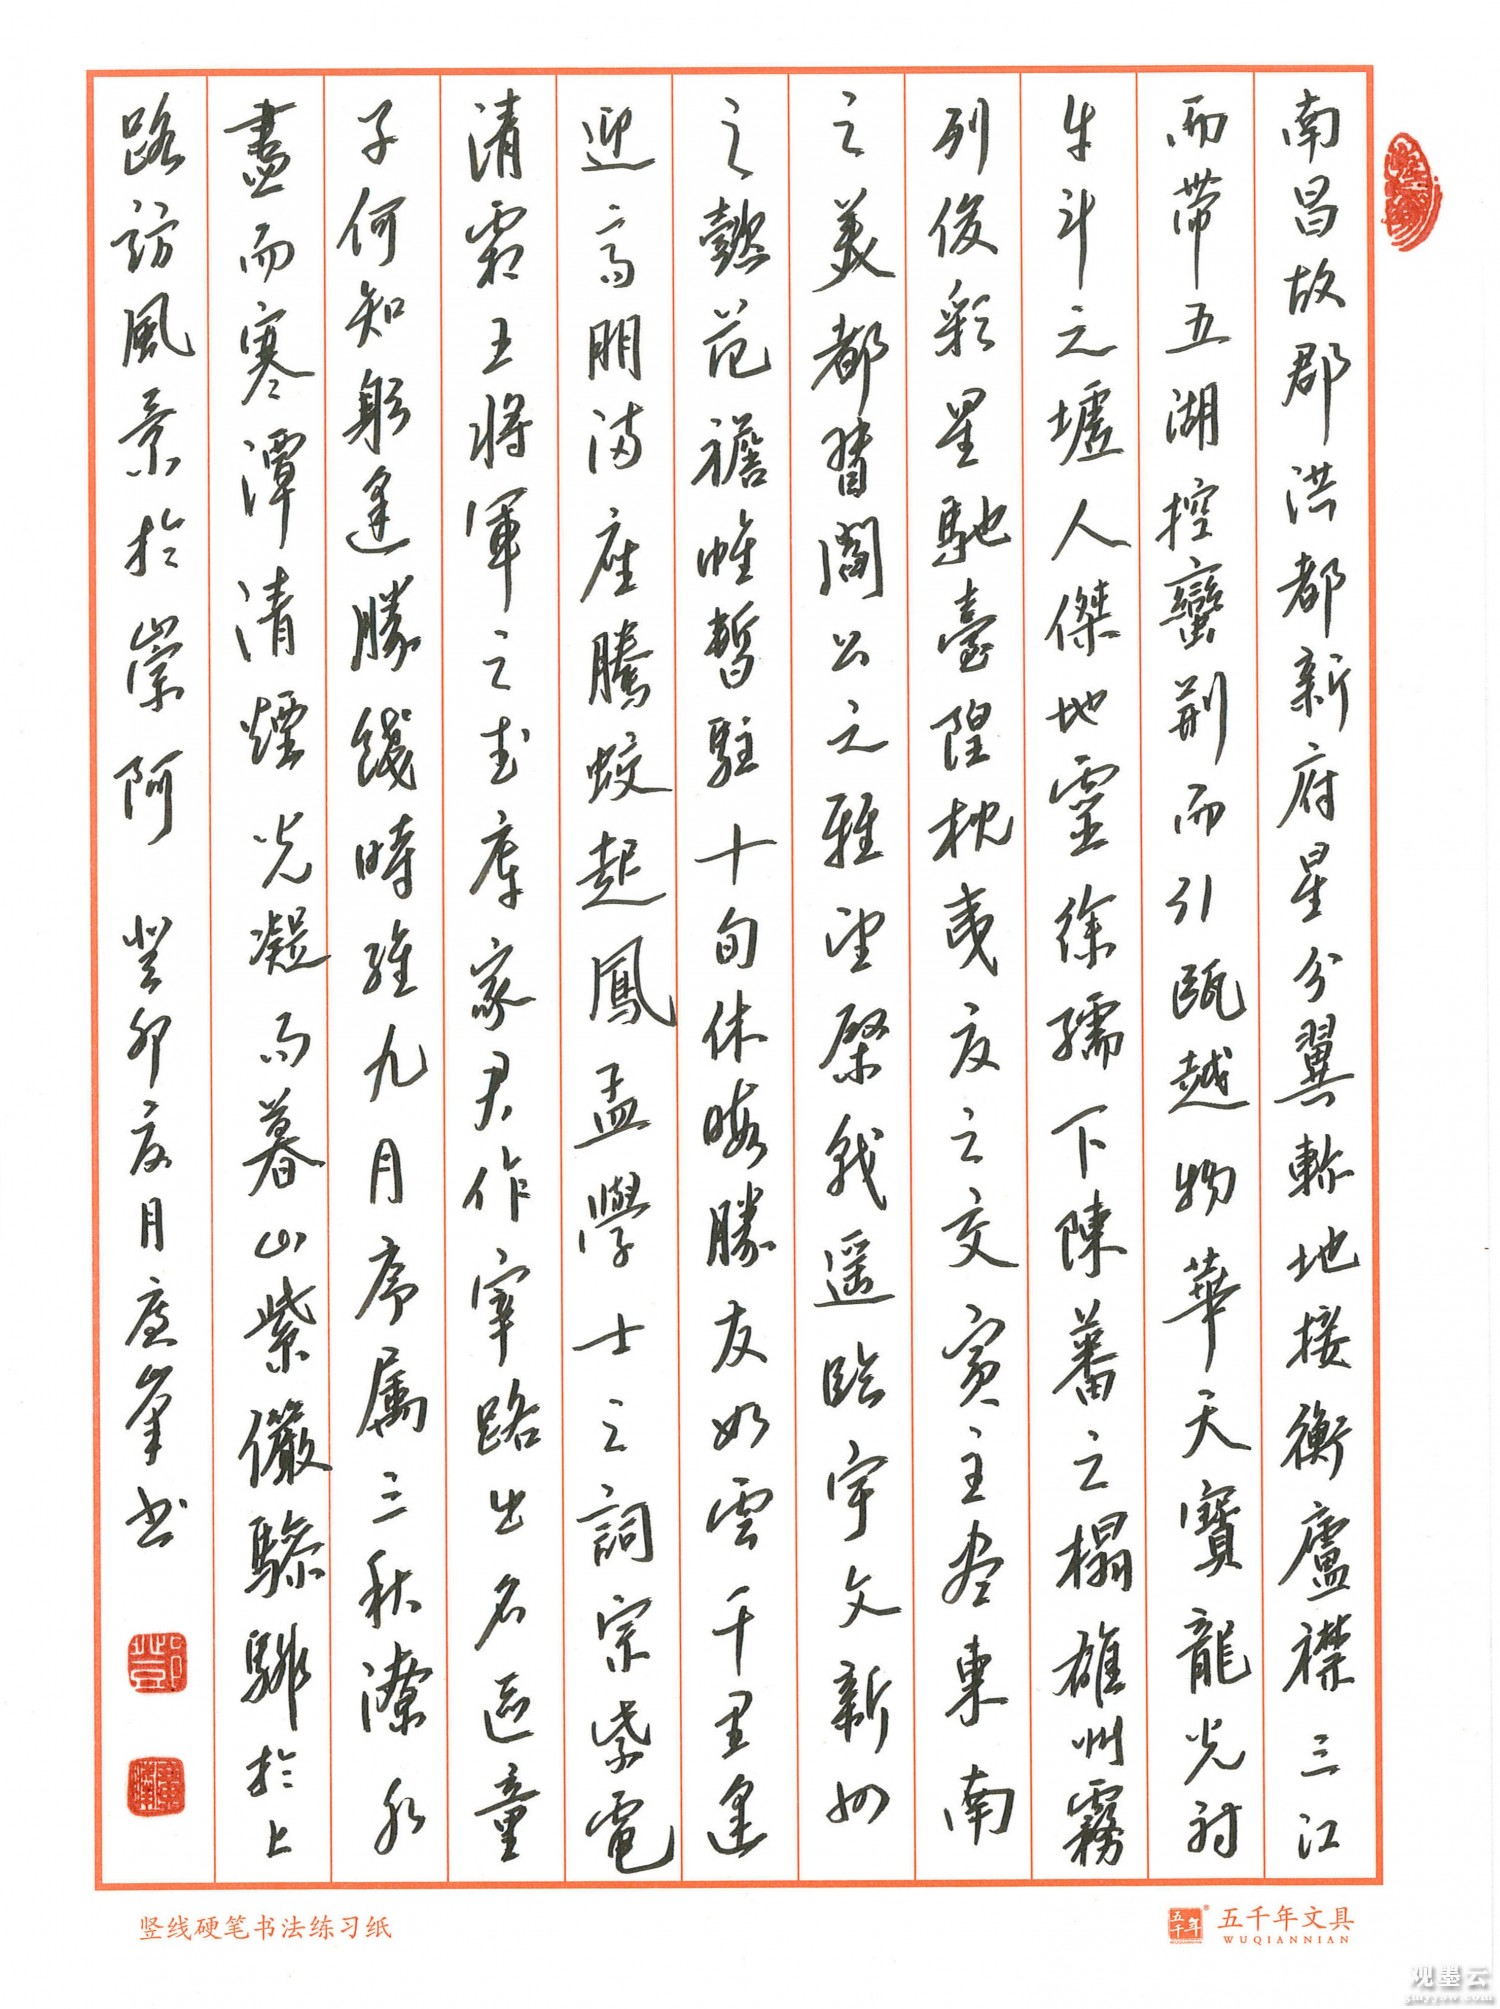 南昌故郡洪都新府星分翼軫地接衡廬襟三江
而帶五湖控蠻荆而引甌越物華天寶龍光射
牛斗之墟人傑地靈徐孺下陳蕃之榻雄州霧
列俊彩星馳臺隍枕夷夏之交賓主尽東南
之美都督閻公之雅望棨戟遥臨宇文新州
之懿范襜帷暫駐十旬休暇勝友如雲千里逢
迎高朋满座騰蛟起鳳孟學士之詞宗紫電
清霜王將軍之武庫家君作宰路出名區童
子何知躬逢勝餞時維九月序屬三秋潦水
盡而寒潭清煙光凝而暮山紫儼驂騑於上
路訪風景於崇阿 癸卯夏月峯书
竖线硬笔书法练习纸
五千年 五千年文具
WUQIANNIAN
观墨云
gmyyow.com